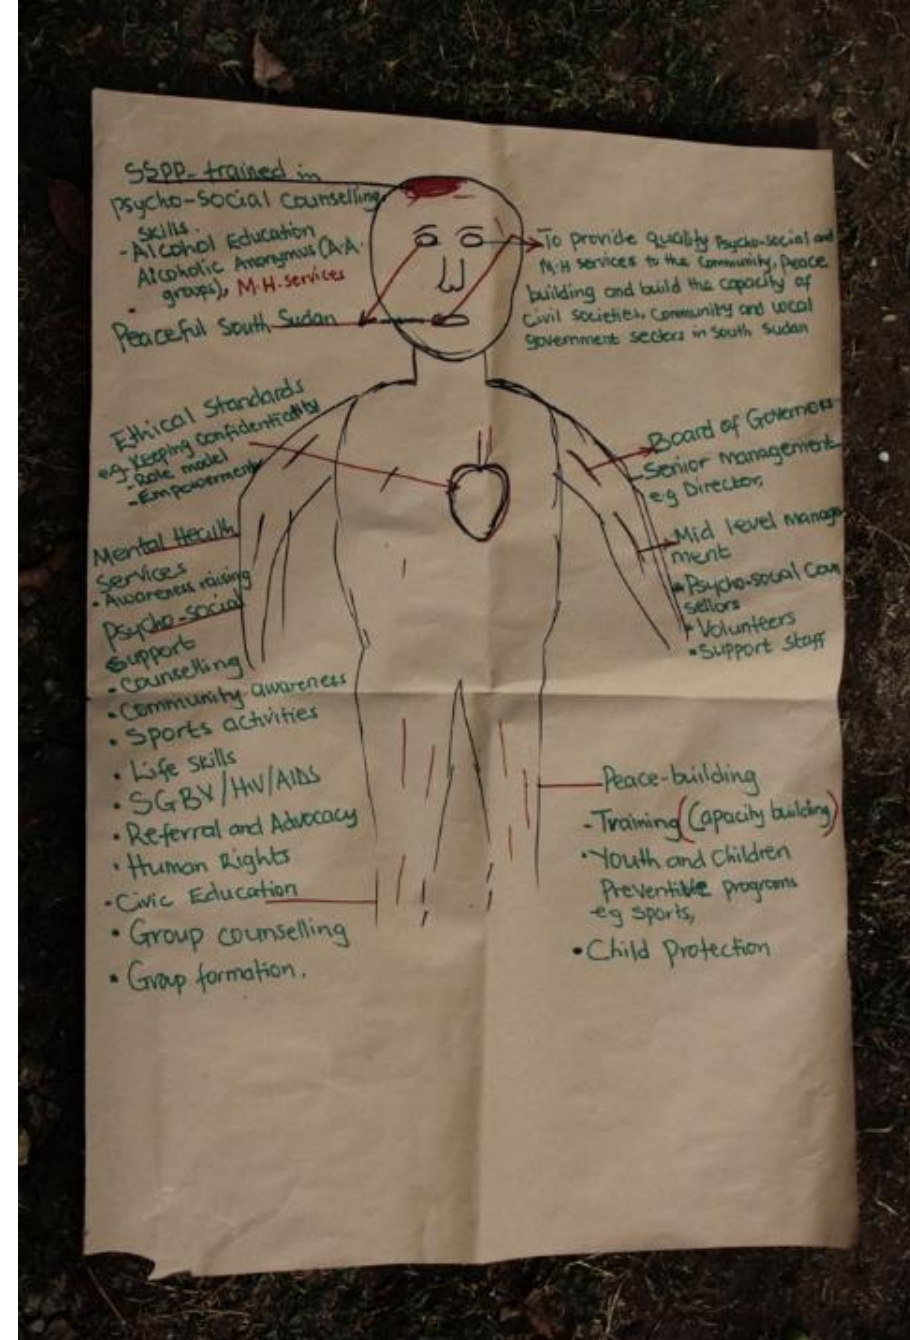 SSPP- trained in
psycho-social counselling
skills.
- Alcohol Education
Alcoholic Anonymus (A.A.
groups), M.H. services
Peaceful South Sudan
To provide quality Psycho-social and
M.H services to the community, peace
building and build the capacity of
Civil societies, community and local
government sectors in South Sudan
Ethical Standards
eg. Keeping confidentiality
- Role model
- Empowerment
Board of Governors
- Senior management
eg Director,
Mid level manage
ment
• Psycho-social Coun
sellors
• Volunteers
• Support staff
Mental Health
Services
• Awareness raising
Psycho-social
Support
• Counselling
• Community awareness
• Sports activities
• Life skills
• SGBV/HIV/AIDS
• Referral and Advocacy
• Human Rights
• Civic Education
• Group counselling
• Group formation.
Peace-building
- Training (Capacity building)
• Youth and Children
Preventive programs
eg sports,
• Child Protection